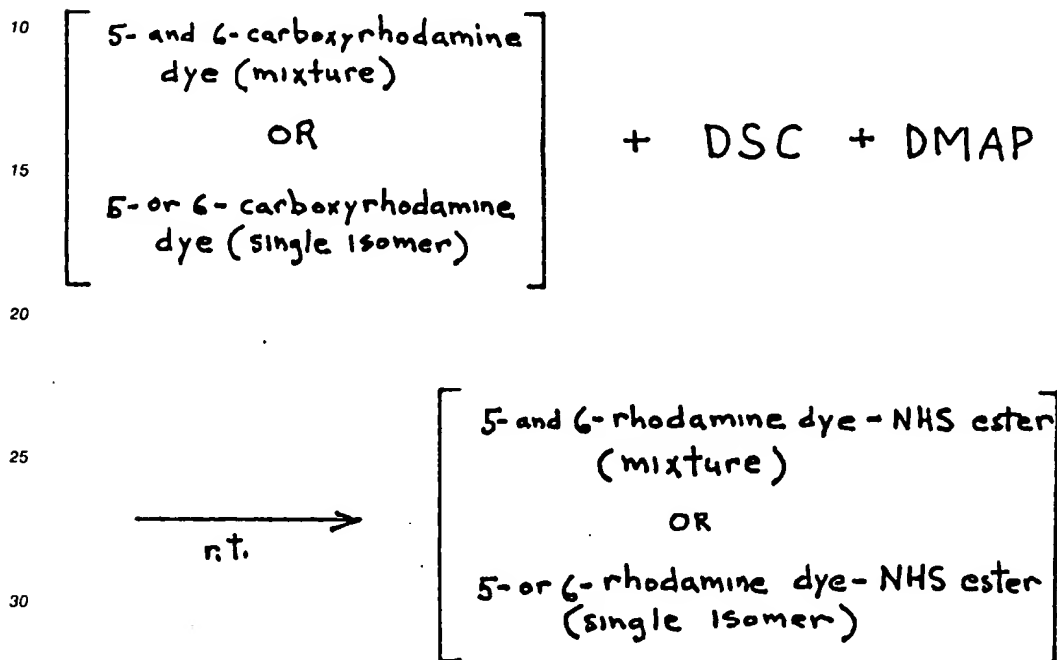 10
5- and 6-carboxyrhodamine
dye (mixture)
OR
15
5- or 6-carboxyrhodamine
dye (single isomer)
+ DSC + DMAP
20
25
5- and 6-rhodamine dye-NHS ester
(mixture)
OR
r.t.
30
5- or 6-rhodamine dye-NHS ester
(single isomer)